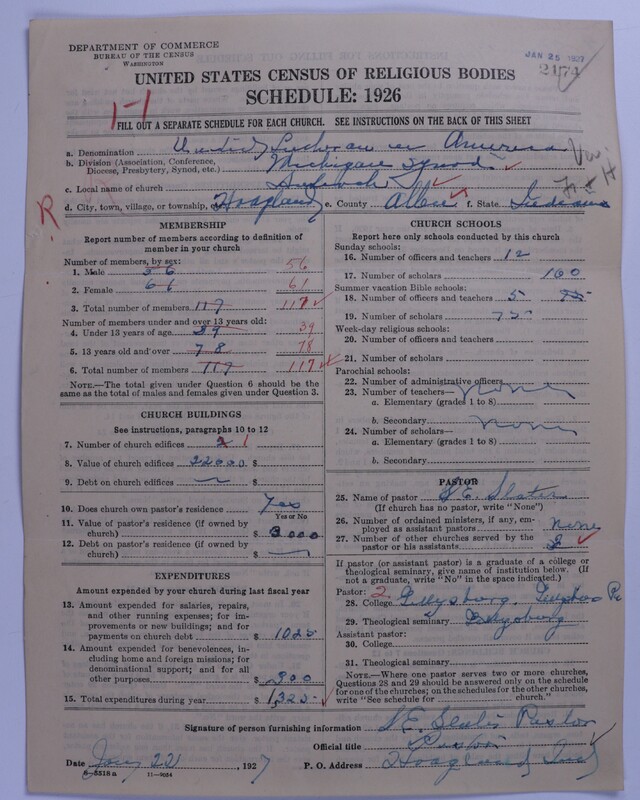 DEPARTMENT OF COMMERCE
BUREAU OF THE CENSUS
WASHINGTON
JAN 25 1927
2474
UNITED STATES CENSUS OF RELIGIOUS BODIES
SCHEDULE: 1926
1-1
FILL OUT A SEPARATE SCHEDULE FOR EACH CHURCH. SEE INSTRUCTIONS ON THE BACK OF THIS SHEET
a. Denomination United Lutheran in America
b. Division (Association, Conference, Diocese, Presbytery, Synod, etc.) Michigan Synod
c. Local name of church Antioch
d. City, town, village, or township, Hoagland e. County Allen f. State Indiana
R
MEMBERSHIP
Report number of members according to definition of member in your church
Number of members, by sex:
1. Male 56 56
2. Female 61 61
3. Total number of members 117 117
Number of members under and over 13 years old:
4. Under 13 years of age 39 39
5. 13 years old and over 78 78
6. Total number of members 117 117
NOTE.—The total given under Question 6 should be the same as the total of males and females given under Question 3.
CHURCH BUILDINGS
See instructions, paragraphs 10 to 12
7. Number of church edifices 1
8. Value of church edifices 22000 $
9. Debt on church edifices $
10. Does church own pastor's residence? Yes
Yes or No
11. Value of pastor's residence (if owned by church) $ 3000
12. Debt on pastor's residence (if owned by church) $
EXPENDITURES
Amount expended by your church during last fiscal year
13. Amount expended for salaries, repairs, and other running expenses; for improvements or new buildings; and for payments on church debt $ 1025
14. Amount expended for benevolences, including home and foreign missions; for denominational support; and for all other purposes $ 300
15. Total expenditures during year $ 1325
CHURCH SCHOOLS
Report here only schools conducted by this church
Sunday schools:
16. Number of officers and teachers 12
17. Number of scholars 100
Summer vacation Bible schools:
18. Number of officers and teachers 5
19. Number of scholars 75
Week-day religious schools:
20. Number of officers and teachers
21. Number of scholars
Parochial schools:
22. Number of administrative officers
23. Number of teachers— none
a. Elementary (grades 1 to 8)
b. Secondary
24. Number of scholars— none
a. Elementary (grades 1 to 8)
b. Secondary
PASTOR
25. Name of pastor S E. Slater
(If church has no pastor, write "None")
26. Number of ordained ministers, if any, employed as assistant pastors none
27. Number of other churches served by the pastor or his assistants
If pastor (or assistant pastor) is a graduate of a college or theological seminary, give name of institution below. (If not a graduate, write "No" in the space indicated.)
Pastor: 2
28. College Gettysburg,
29. Theological seminary Gettysburg
Assistant pastor:
30. College
31. Theological seminary
NOTE.—Where one pastor serves two or more churches, Questions 28 and 29 should be answered only on the schedule for one of the churches; on the schedules for the other churches, write "See schedule for church."
Signature of person furnishing information S E. Slater Pastor
Official title Pastor
Date Jan 22, 1927 P. O. Address Hoagland Ind
6-5518 a 11-9054